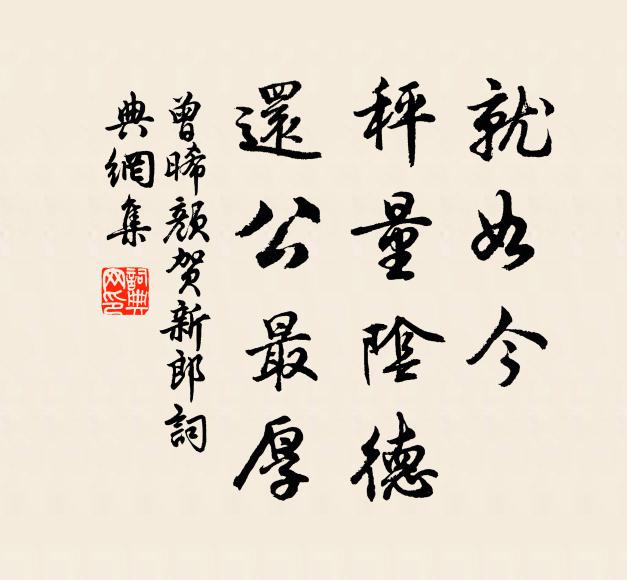 就如今
秤量陰德
還公最厚
曾晞顏賀新郎詞
典網集
詞典网印